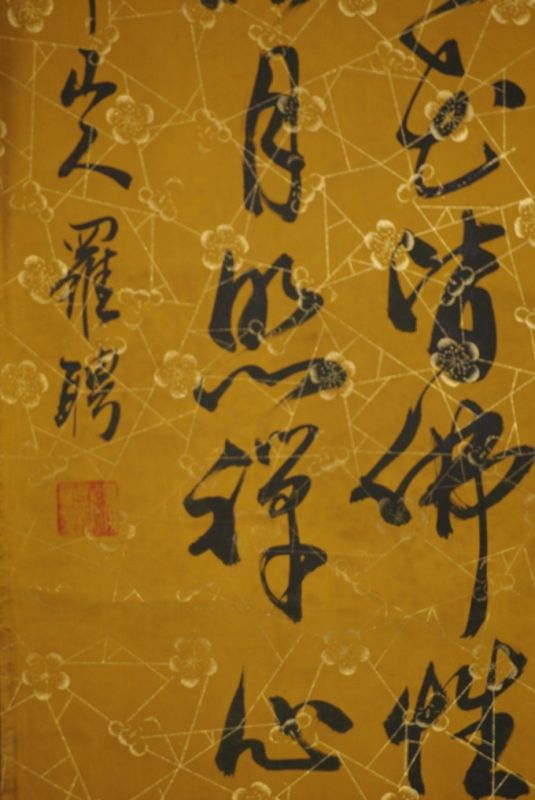 花清佛性
月照禪心
山人羅聘